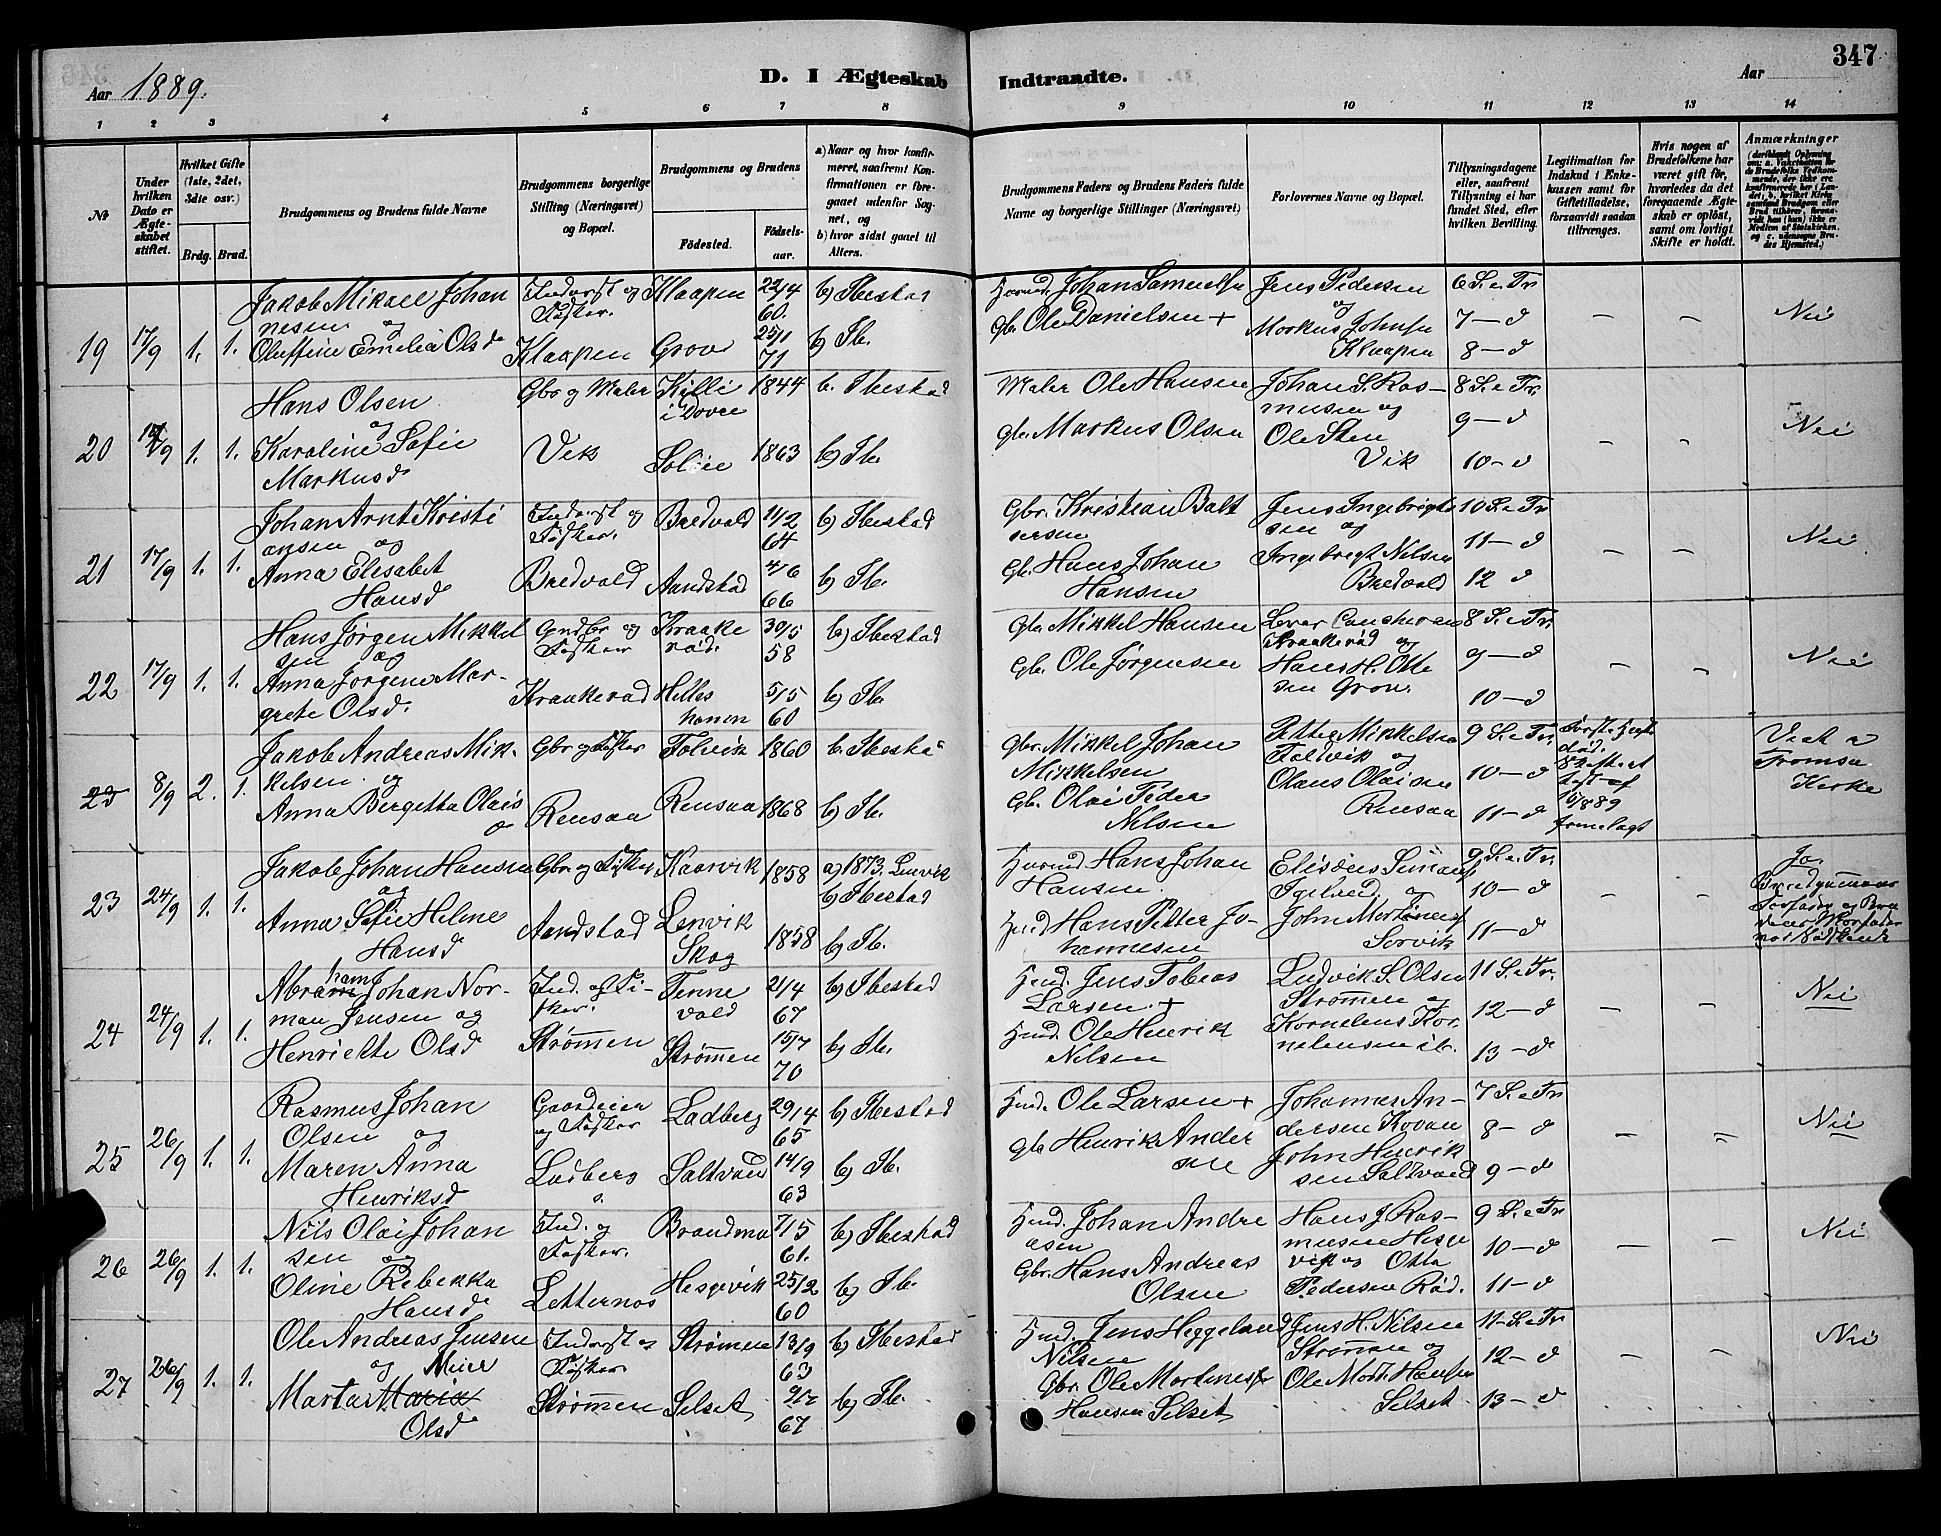 Aar 1889.
D. I Ægteskab Indtraadte.
Aar
347
1 2 3 4 5 6 7 8 9 10 11 12 13 14
№
Under hvilken Dato er Ægteskabet stiftet.
Hvilket Gifte (1ste, 2det, 3die osv.)
Brdg. Brud.
Brudgommens og Brudens fulde Navne
Brudgommens borgerlige Stilling (Næringsvei) og Bopæl.
Brudgommens og Brudens
Fødested.
Fødsels-aar.
a) Naar og hvor konfirmeret, saafremt Konfirmationen er foregaaet udenfor Sognet, og
b) hvor sidst gaaet til Alters.
Brudgommens Faders og Brudens Faders fulde Navne og borgerlige Stillinger (Næringsvei)
Forlovernes Navne og Bopæl.
Tillysningsdagene eller, saafremt Tillysning ei har fundet Sted, efter hvilken Bevilling.
Legitimation for Indskud i Enkekassen samt for Giftetilladelse, forsaavidt saadan tiltrænges.
Hvis nogen af Brudefolkene har været gift før, hvorledes da det foregaaende Ægteskab er opløst, samt om lovligt Skifte er holdt.
Anmærkninger
19 17/9 1. 1.
Jakob Mikael Johannesen og
Oluffine Emelia Olsd
Indorst og Fisker. Klaapen
Klaapen 22/4 60. b) Ibestad
Grov 25/1 71 b) Ib.
Johan Samuelsen
Gbr. Ole Danielsen +
Jens Pedersen og
Markus Johnsen Klaapen
6 S. e Tr.
7 — d
8 — d
— — Nei
20 17/9 1. 1.
Hans Olsen og
Karoline Sofie Markusd
Gbr og Maler Vik
Killi i Dovre 1844 b. Ibestad
Sollie 1863 b) Ib.
Maler Ole Hansen
Gbr. Markus Olsen
Johan S. Rasmusen og
Ole Sten Vik
8 S. e Tr.
9 — d
10 — d
— — Nei
21 17/9 1. 1.
Johan Arnt Kristiansen og
Anna Elisabet Hansd
Indorst og Fisker. Bredvold
Bredvold 11/2 64 b) Ibestad
Aandstad 4/6 66 b) Ib.
Gbr. Kristian Baltsersen
Gb. Hans Johan Hansen
Jens Ingebrigtsen og
Ingebregt Nilsen Bredvold
10 S. e Tr
11 — d
12 d
— — Nei
22 17/9 1. 1.
Hans Jörgen Mikkelsen og
Anna Jorgene Margrete Olsd.
Fisker Kraakerød
Kraakerød. 30/5 58 b) Ibestad
Hilleshamn 5/5 60 b) Ib.
Gbr Mikkel Hansen
Gb. Ole Jørgensen
Kraakerød og
Hans H. Ottesen Grov.
8 S. e Tr.
9 — d
10 — d
— — Nei
23 8/9 2. 1.
Jakob Andreas Mikkelsen og
Anna Bergitta Olaisd
Gbr og Fisker Rensaa
Folvik 1860 b. Ibestad
Rensaa 1868 b) Ib.
Gbr. Mikkel Johan Mikkelsen
Gb. Olai Peder Nilsen
Petter Mikkelsen Foldvik og
Olaus Olaisen Rensaa
9 S. e Tr.
10 — d
11 — d
Viet i Tromsø Kirke
23 24/9 1. 1.
Jakob Johan Hansen og
Anna Sofie Helene Hansd
Gbr. og Fisker Aandstad
Kaarvik 1858 a) 1873. Lenvik b) Ibestad
Lenvik Skog 1858 b) Ib.
Hans Johan Hansen.
Hans Petter Johannesen
og
John Mortensen Sorvik
9 S. e. Tr.
10 — d
11 — d
Ja.
24 24/9 1. 1.
Abraham Johan Norman Jensen og
Henriette Olsd
Ind. og Fisker. Strømmen
Tennevold 21/4 67 b) Ibestad
Strømmen 15/7 70 b) Ib.
Jens Tobias Larsen. +
Ole Henrik Nilsen
Ludvik S. Olsen Strømmen og
Kornelius Kornelensen ib.
11 S. e Tr.
12 — d
13 — d
— — Nei
25 26/9 1. 1.
Rasmus Johan Olsen og
Maren Anna Henriksd
Gaardeier og Fisker Ladberg
Ladberg 29/4 65 b) Ibestad
Saltvand 14/9 63 b) Ib.
Ole Larsen +
Gb Henrik Andersen
Johannes Andersen
John Henriksen Saltvand
7 S. e Tr
8 — d
9 — d
— — Nei
26 26/9 1. 1.
Nils Olai Johansen og
Oline Rebekka Hansd
Ind. og Fisker. Letternos
Brandmo 7/5 61. b) Ibestad
Hesgevik 25/2 60 b) Ib.
Johan Andreasen
Gbr. Hans Andreas Olsen
Hans J. Rasmusen
og Otto Pedersen Rød.
9 S. e Tr
10 — d
11 — d
— — Nei
27 26/9 1. 1.
Ole Andreas Jensen og
Marta Maria Meier Olsd
Indorst og Fisker Strømmen
Strømmen 13/9 63 b) Ibestad
Selset 9/2 67 b) Ib.
Jens Heggelund Nilsen
Gbr. Ole Martines Hansen Selset
Jens H. Nilsen Strømmen og
Ole Mort. Hansen Selset
11 S. e Tr
12 — d
13 — d
— — Nei